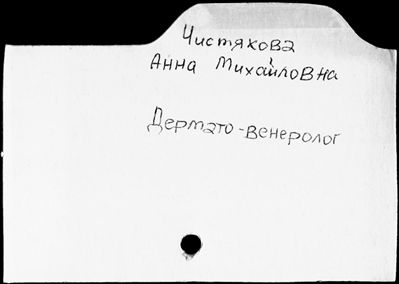 Чистякова
Анна Михайловна
Дермато-венеролог